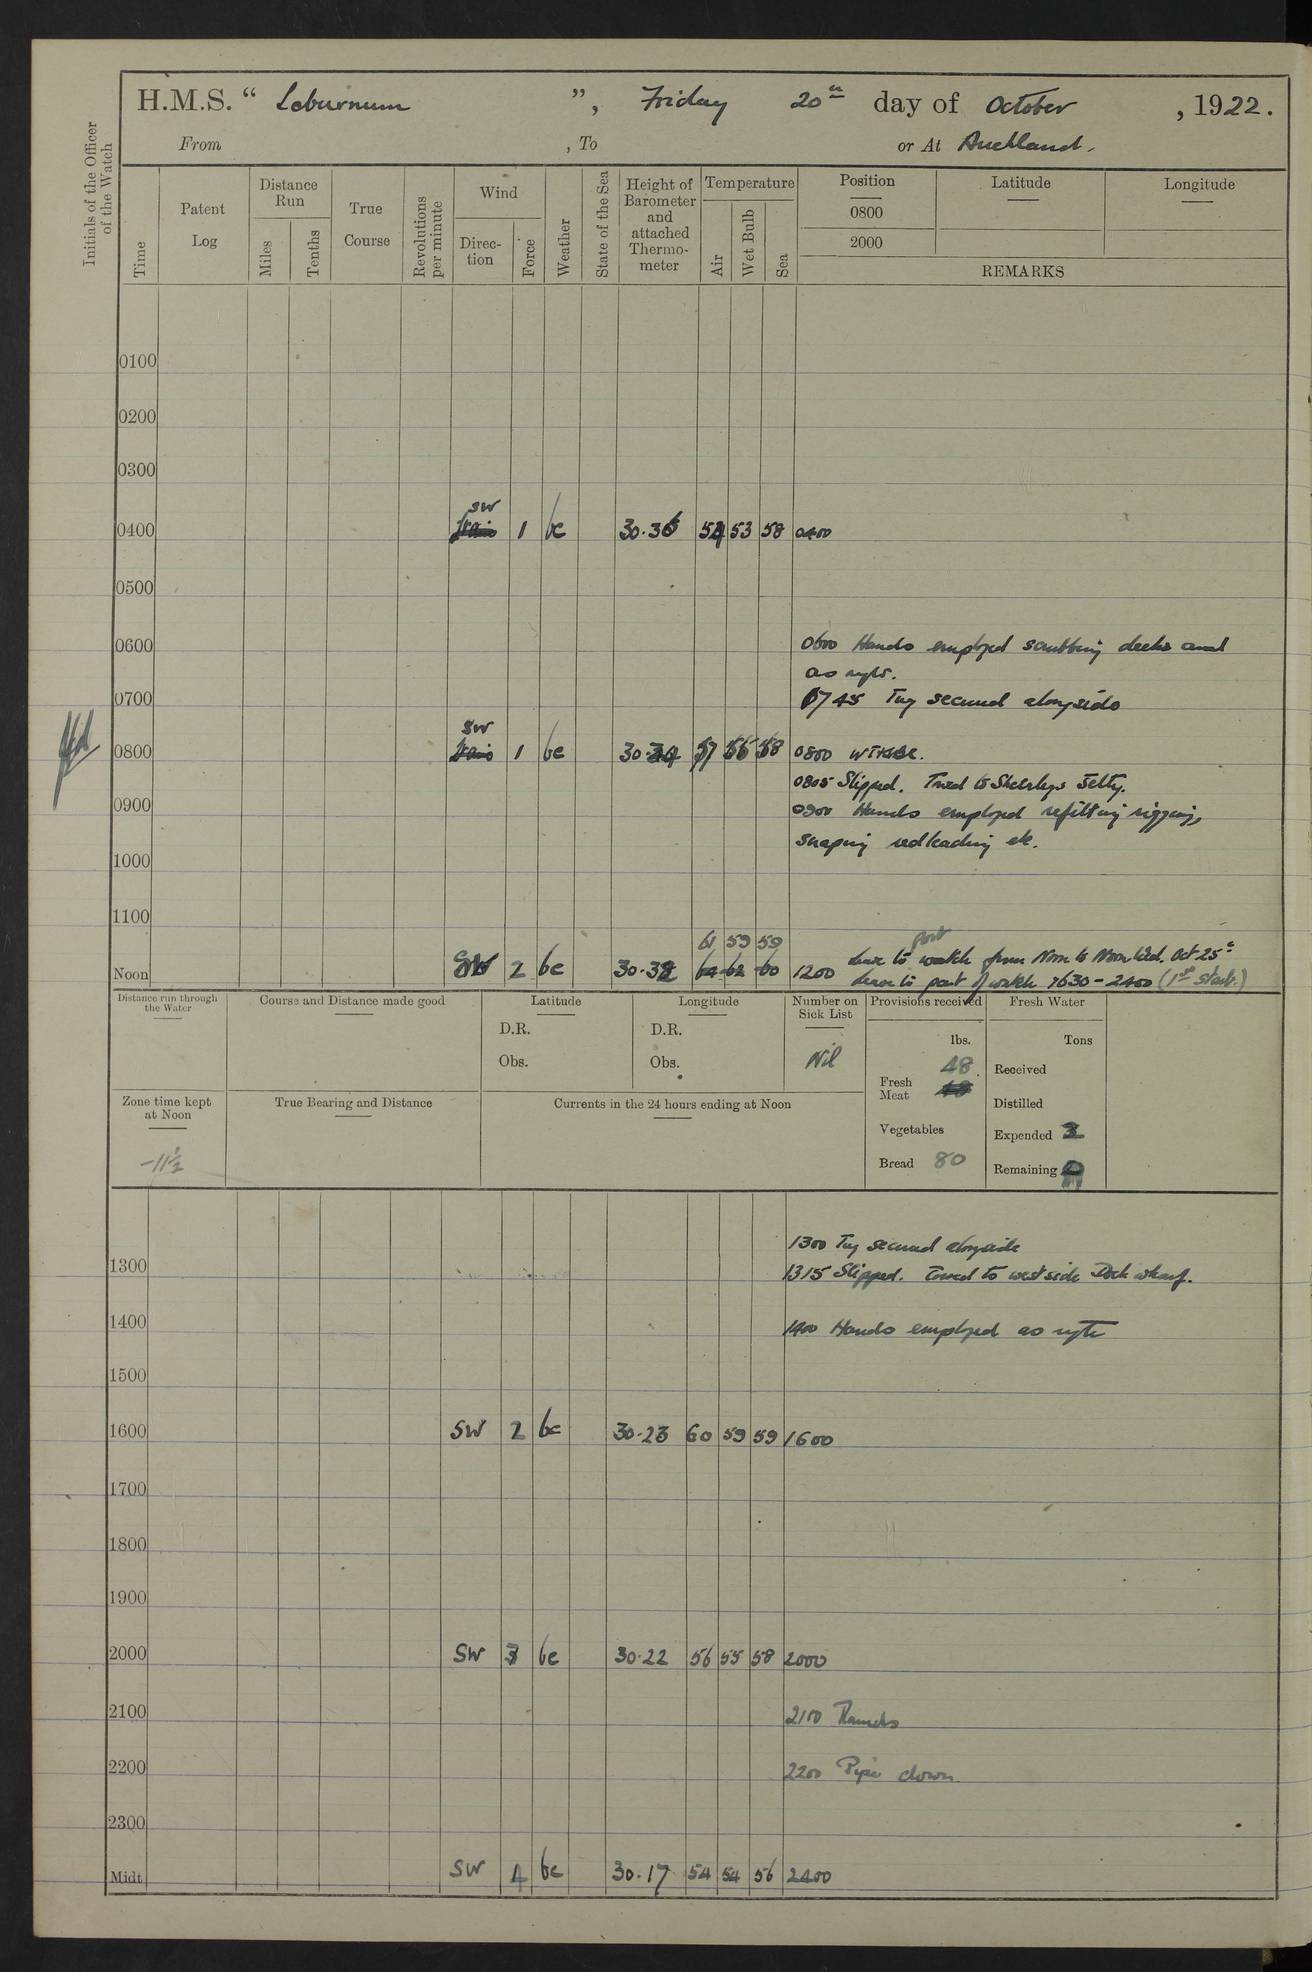 H.M.S. “ Laburnum ”, Friday 20th day of October , 1922.
From , To or At Auckland.
Initials of the Officer of the Watch
Time
Patent Log
Distance Run
Miles
Tenths
True Course
Revolutions per minute
Wind
Direction
Force
Weather
State of the Sea
Height of Barometer and attached Thermometer
Temperature
Air
Wet Bulb
Sea
Position
0800
2000
Latitude
Longitude
REMARKS
0100
0200
0300
SW
0400 1 bc 30.36 54 53 58 0400
0500
0600 0600 Hands employed scrubbing decks and
as reqte.
0700 0745 Tug secured alongside
SW
0800 1 bc 30.34 57 56 58 0800
0805 Slipped. Towed to Jetty.
0900 0900 Hands employed refitting rigging,
scraping redleading etc.
1000
1100
61 59 59
Noon SW 2 bc 30.32 64 62 60 1200 Leave to part watch from Noon to Noon Wed. Oct 25th
Leave to part of watch 1630 - 2400 (1st Starb.)
Distance run through the Water
Course and Distance made good
Latitude
D.R.
Obs.
Longitude
D.R.
Obs.
Number on Sick List
Nil
Provisions received
lbs.
Fresh Meat 48
Vegetables
Bread 80
Fresh Water
Tons
Received
Distilled
Expended 3
Remaining
Zone time kept at Noon
-11½
True Bearing and Distance
Currents in the 24 hours ending at Noon
1300 Tug secured alongside
1300 1315 Slipped. Towed to west side Dock wharf.
1400 1400 Hands employed as reqte
1500
1600 SW 2 bc 30.23 60 59 59 1600
1700
1800
1900
2000 SW 3 bc 30.22 56 55 58 2000
2100 2100 Rounds
2200 2200 Pipe down
2300
Midt. SW 4 bc 30.17 54 54 56 2400